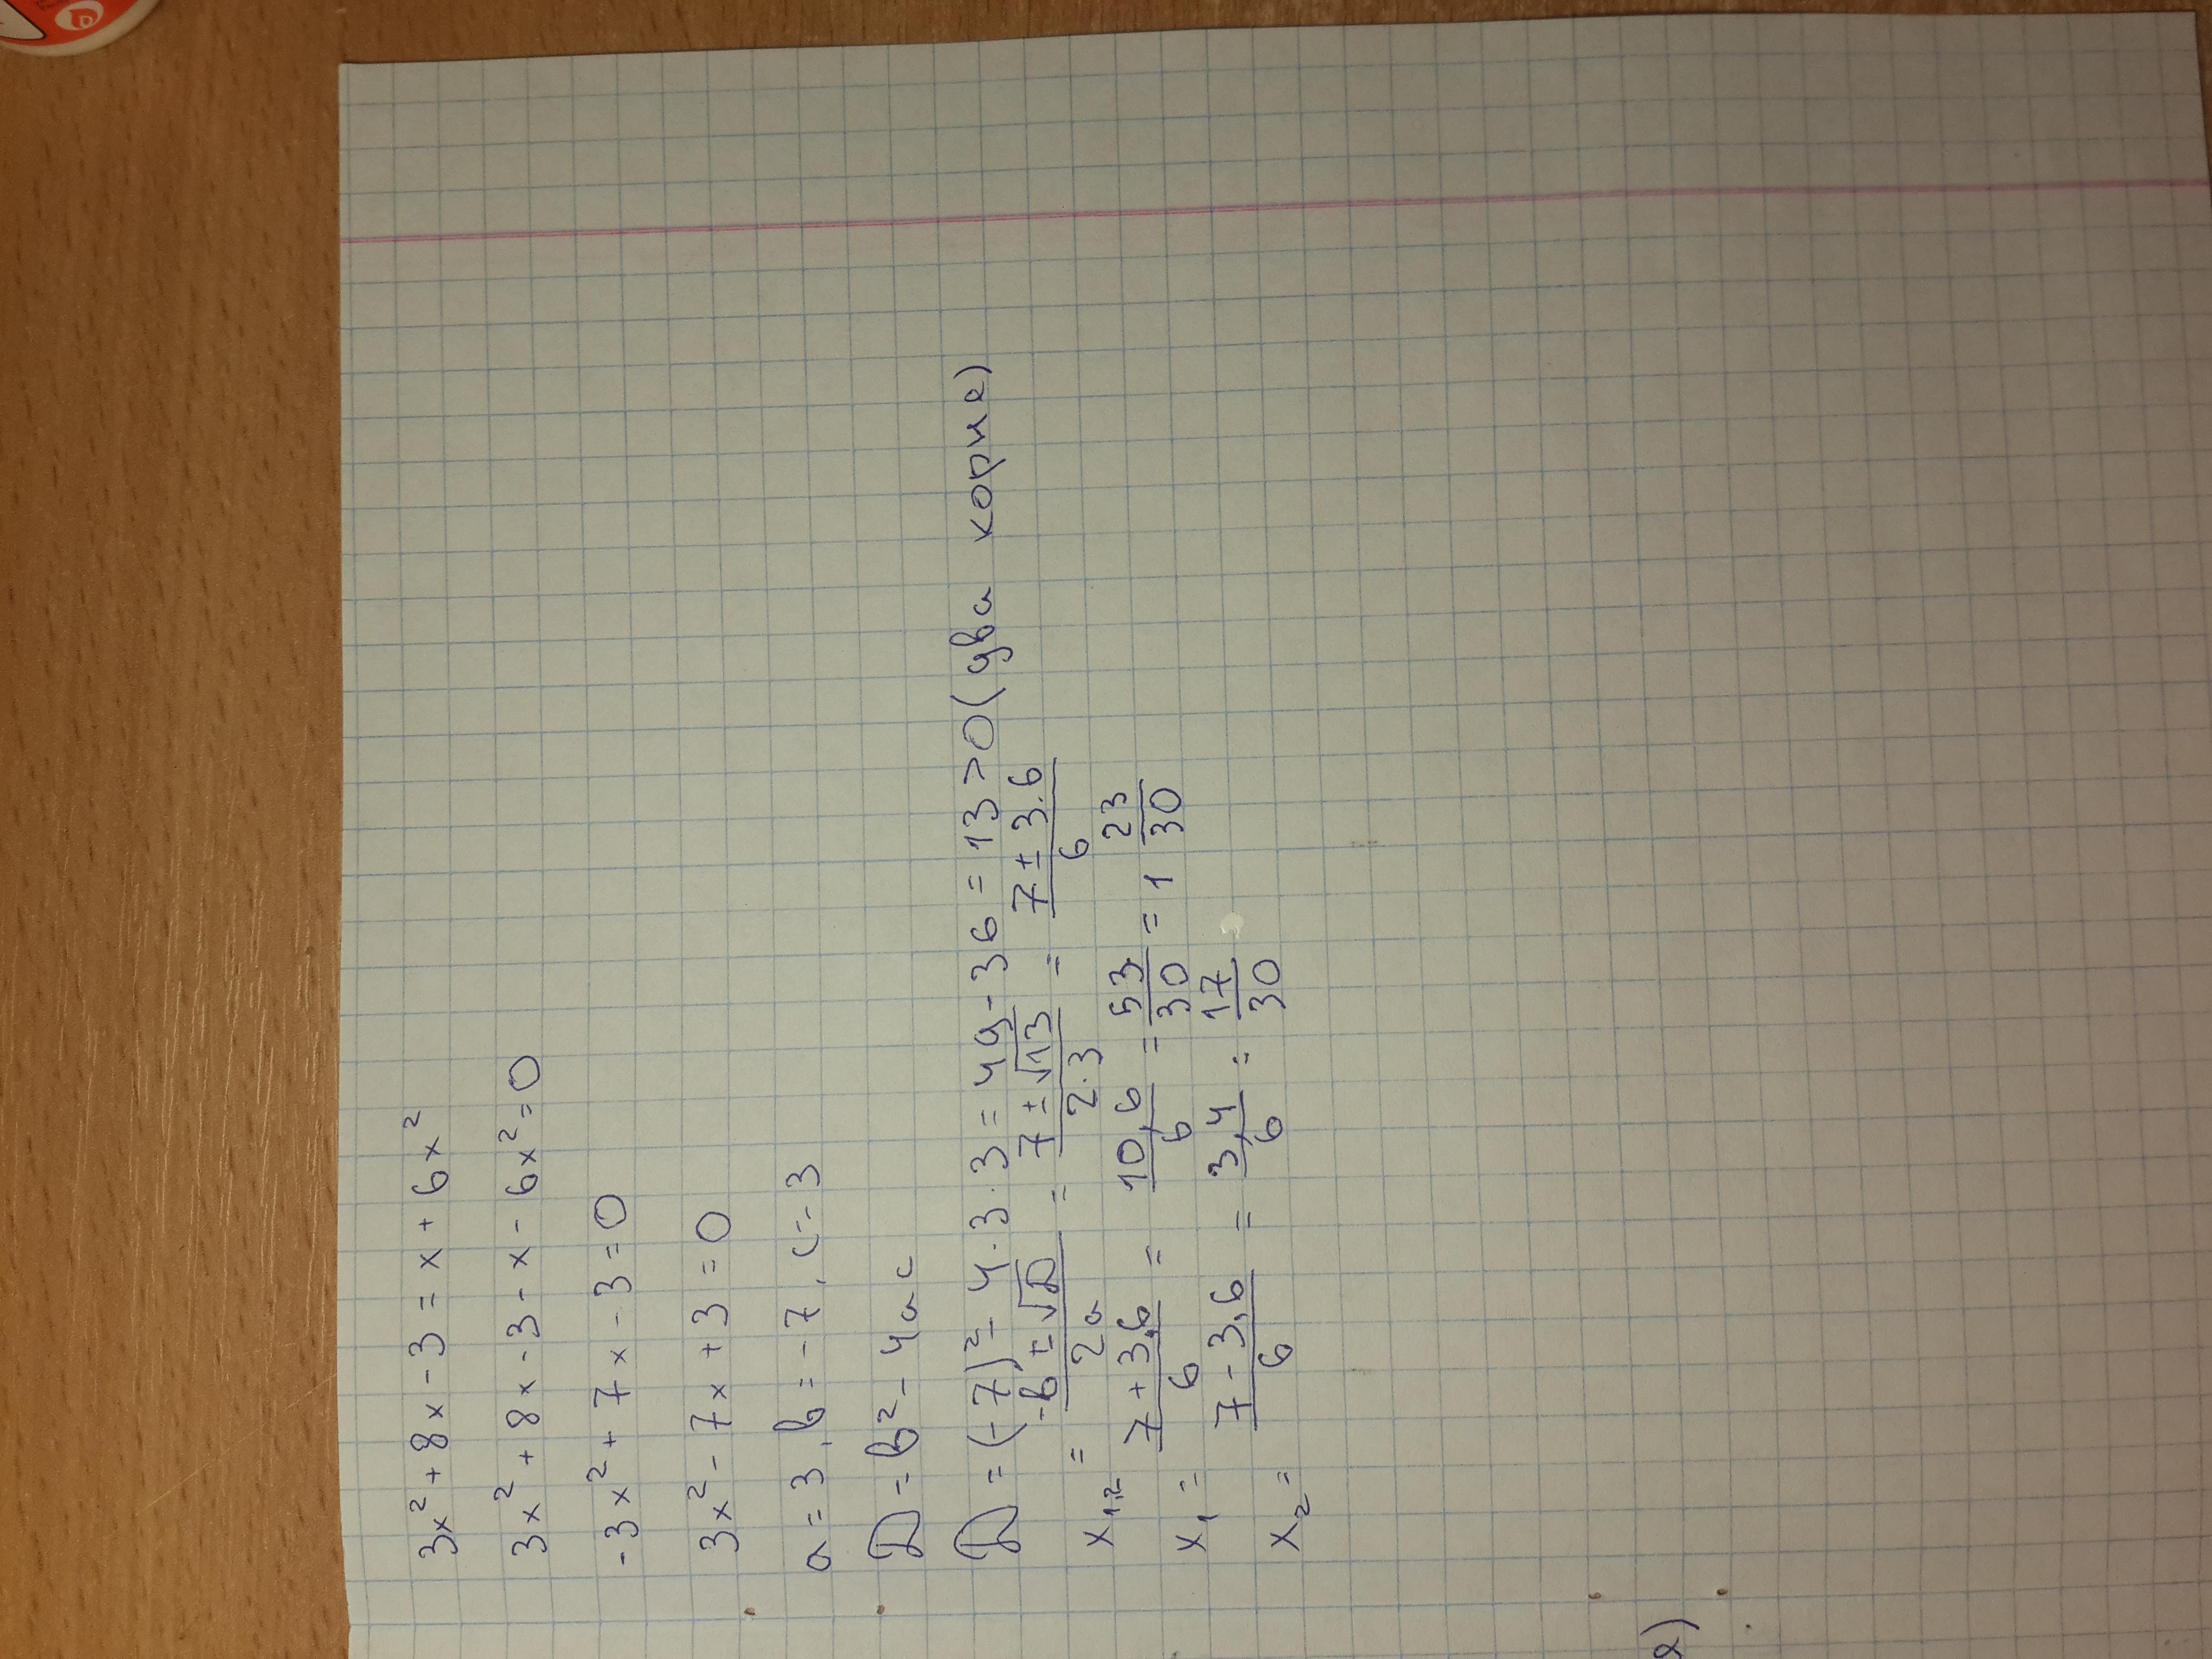 3x² + 8x - 3 = x + 6x²
3x² + 8x - 3 - x - 6x² = 0
-3x² + 7x - 3 = 0
3x² - 7x + 3 = 0
a = 3, b = -7, c = 3
D = b² - 4ac
D = (-7)² - 4·3·3 = 49 - 36 = 13 > 0 (два корне)
x₁,₂ = (-b ± √D)/2a = (7 ± √13)/2·3 = (7 ± 3.6)/6
x₁ = (7 + 3,6)/6 = 10,6/6 = 53/30 = 1 23/30
x₂ = (7 - 3,6)/6 = 3,4/6 = 17/30